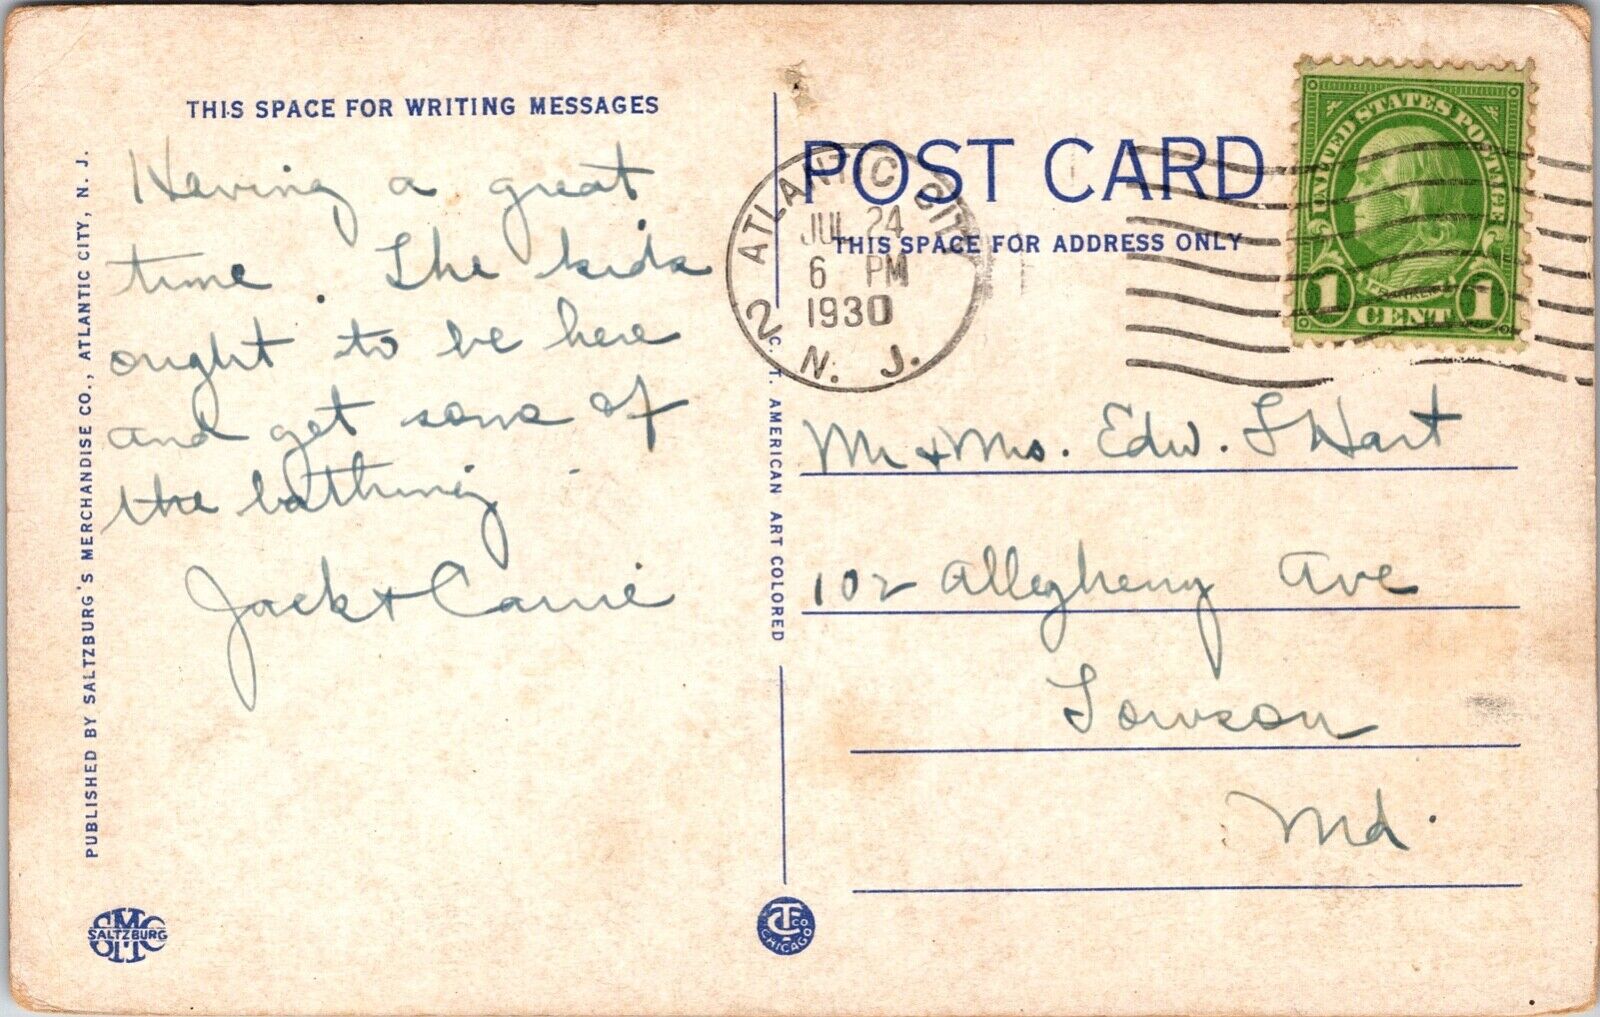 THIS SPACE FOR WRITING MESSAGES
Having a great
time. The kids
ought to be here
and get some of
the bathing
Jack & Carrie
PUBLISHED BY SALTZBURG'S MERCHANDISE CO., ATLANTIC CITY, N. J.
SMC
SALTZBURG
C. T. AMERICAN ART COLORED
CT CO
CHICAGO
POST CARD
THIS SPACE FOR ADDRESS ONLY
ATLANTIC CITY
JUL 24
6 PM
1930
2 N. J.
UNITED STATES POSTAGE
FRANKLIN
1 CENT 1
Mr & Mrs. Edw. L Hart
102 Allegheny Ave
Towson
Md.